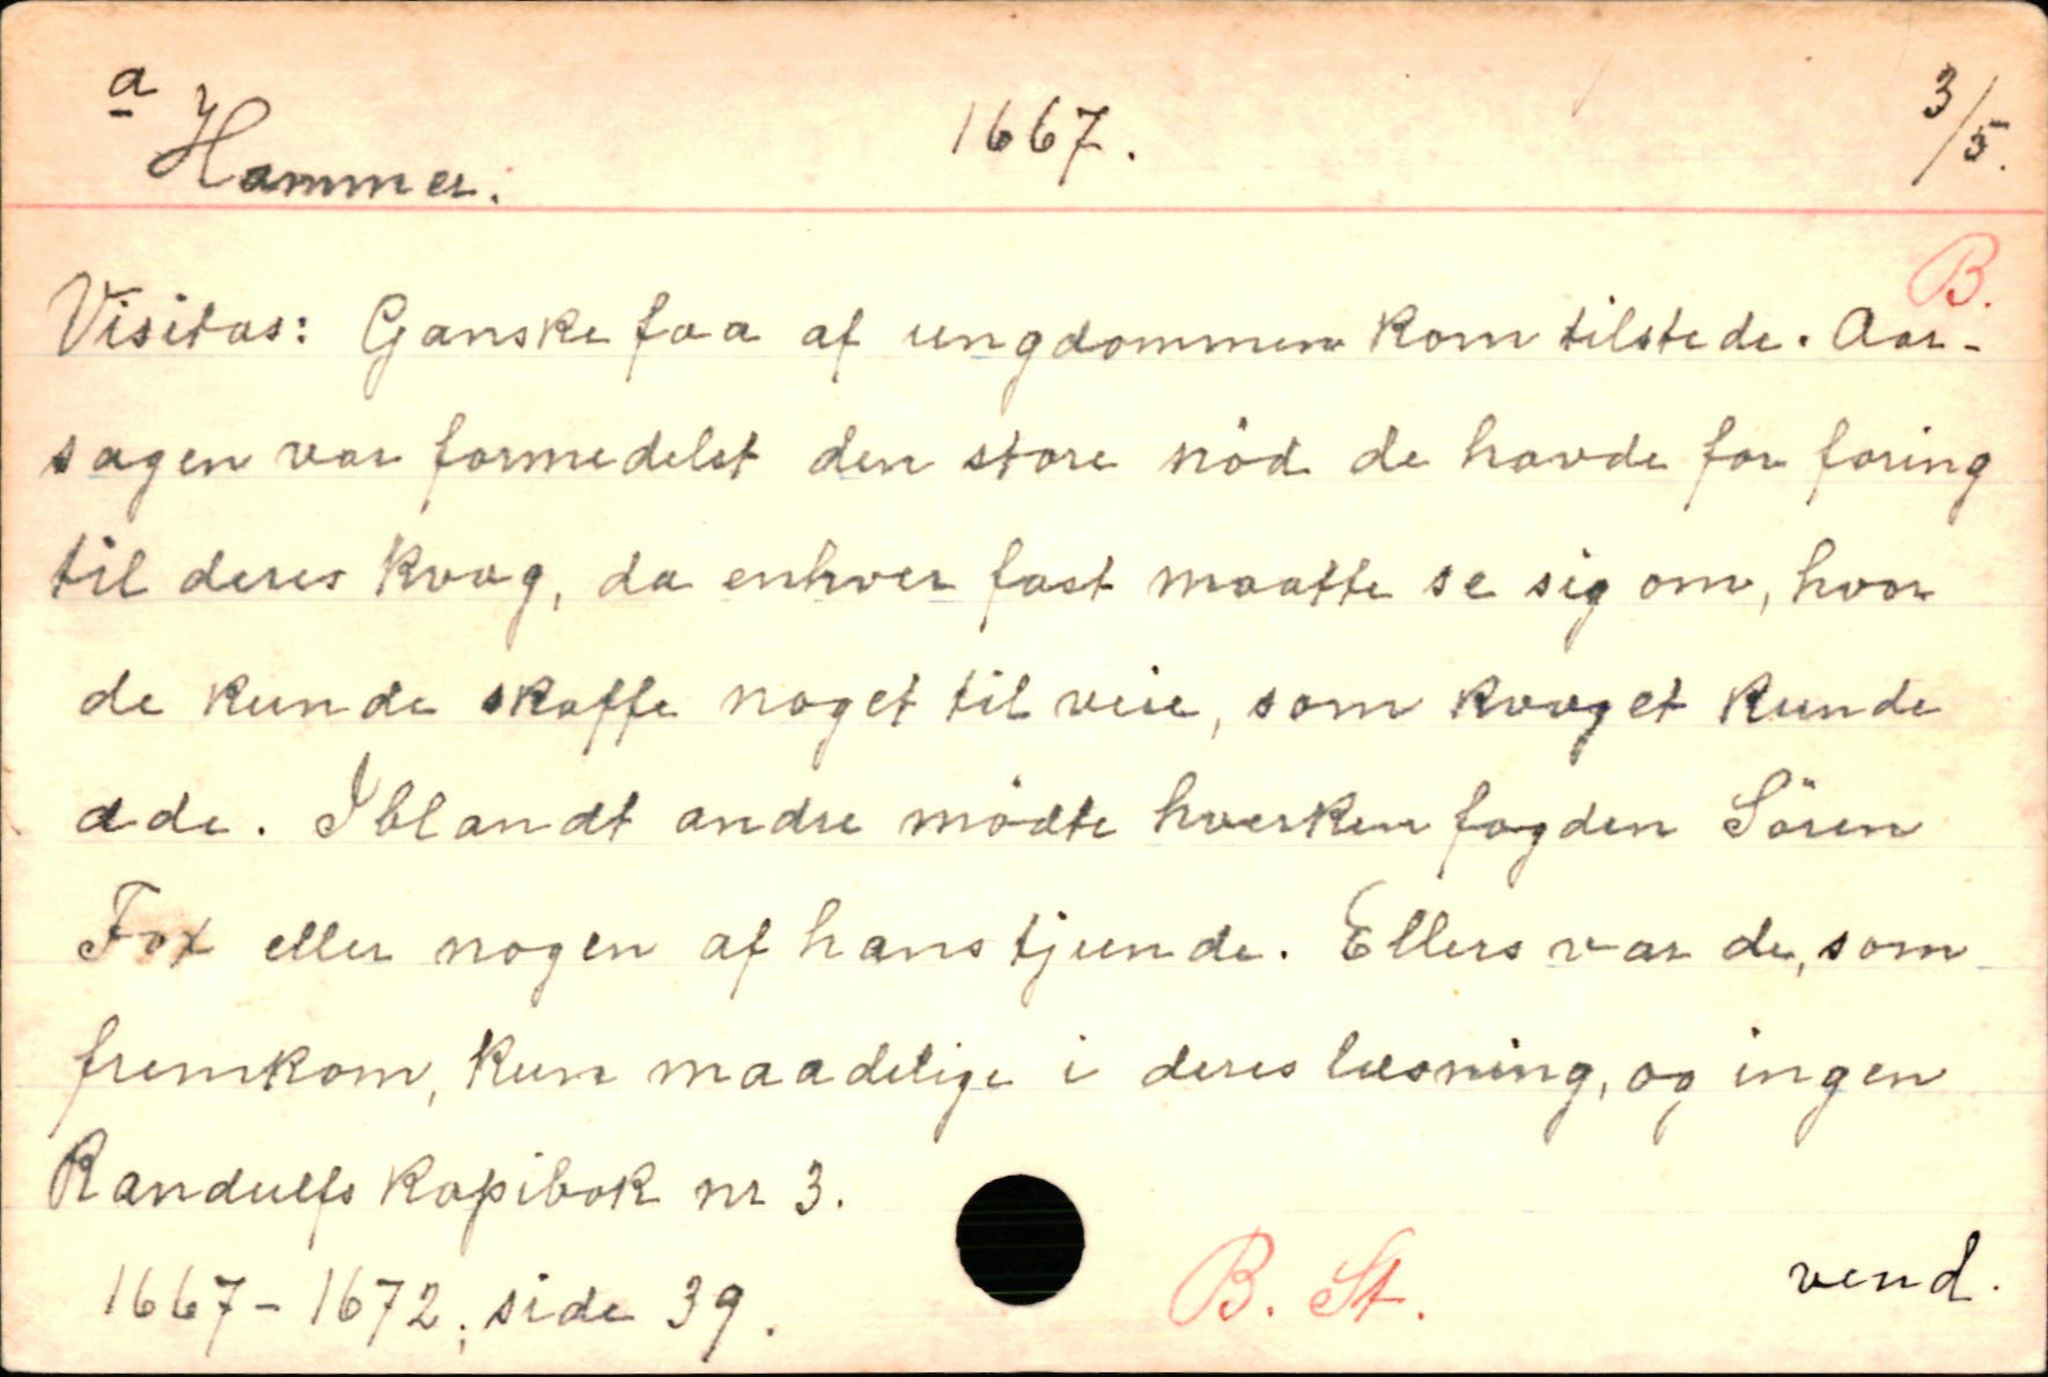 a
Hammer. 1667. 3/5.
B.
Visitas: Ganske faa af ungdommen kom tilstede. Aar-
sagen var formedelst den store nöd de havde for foring
til deres kvæg, da enhver fast maatte se sig om, hvor
de kunde skaffe noget til veie, som kvæget kunde
æde. Iblandt andre mödte hverken fogden Sören
Fox eller nogen af hans tjende. Ellers var de, som
fremkom, kun maadelige i deres læsning, og ingen
Randulfs Kopibok nr 3.
1667-1672, side 39. B. St. vend.